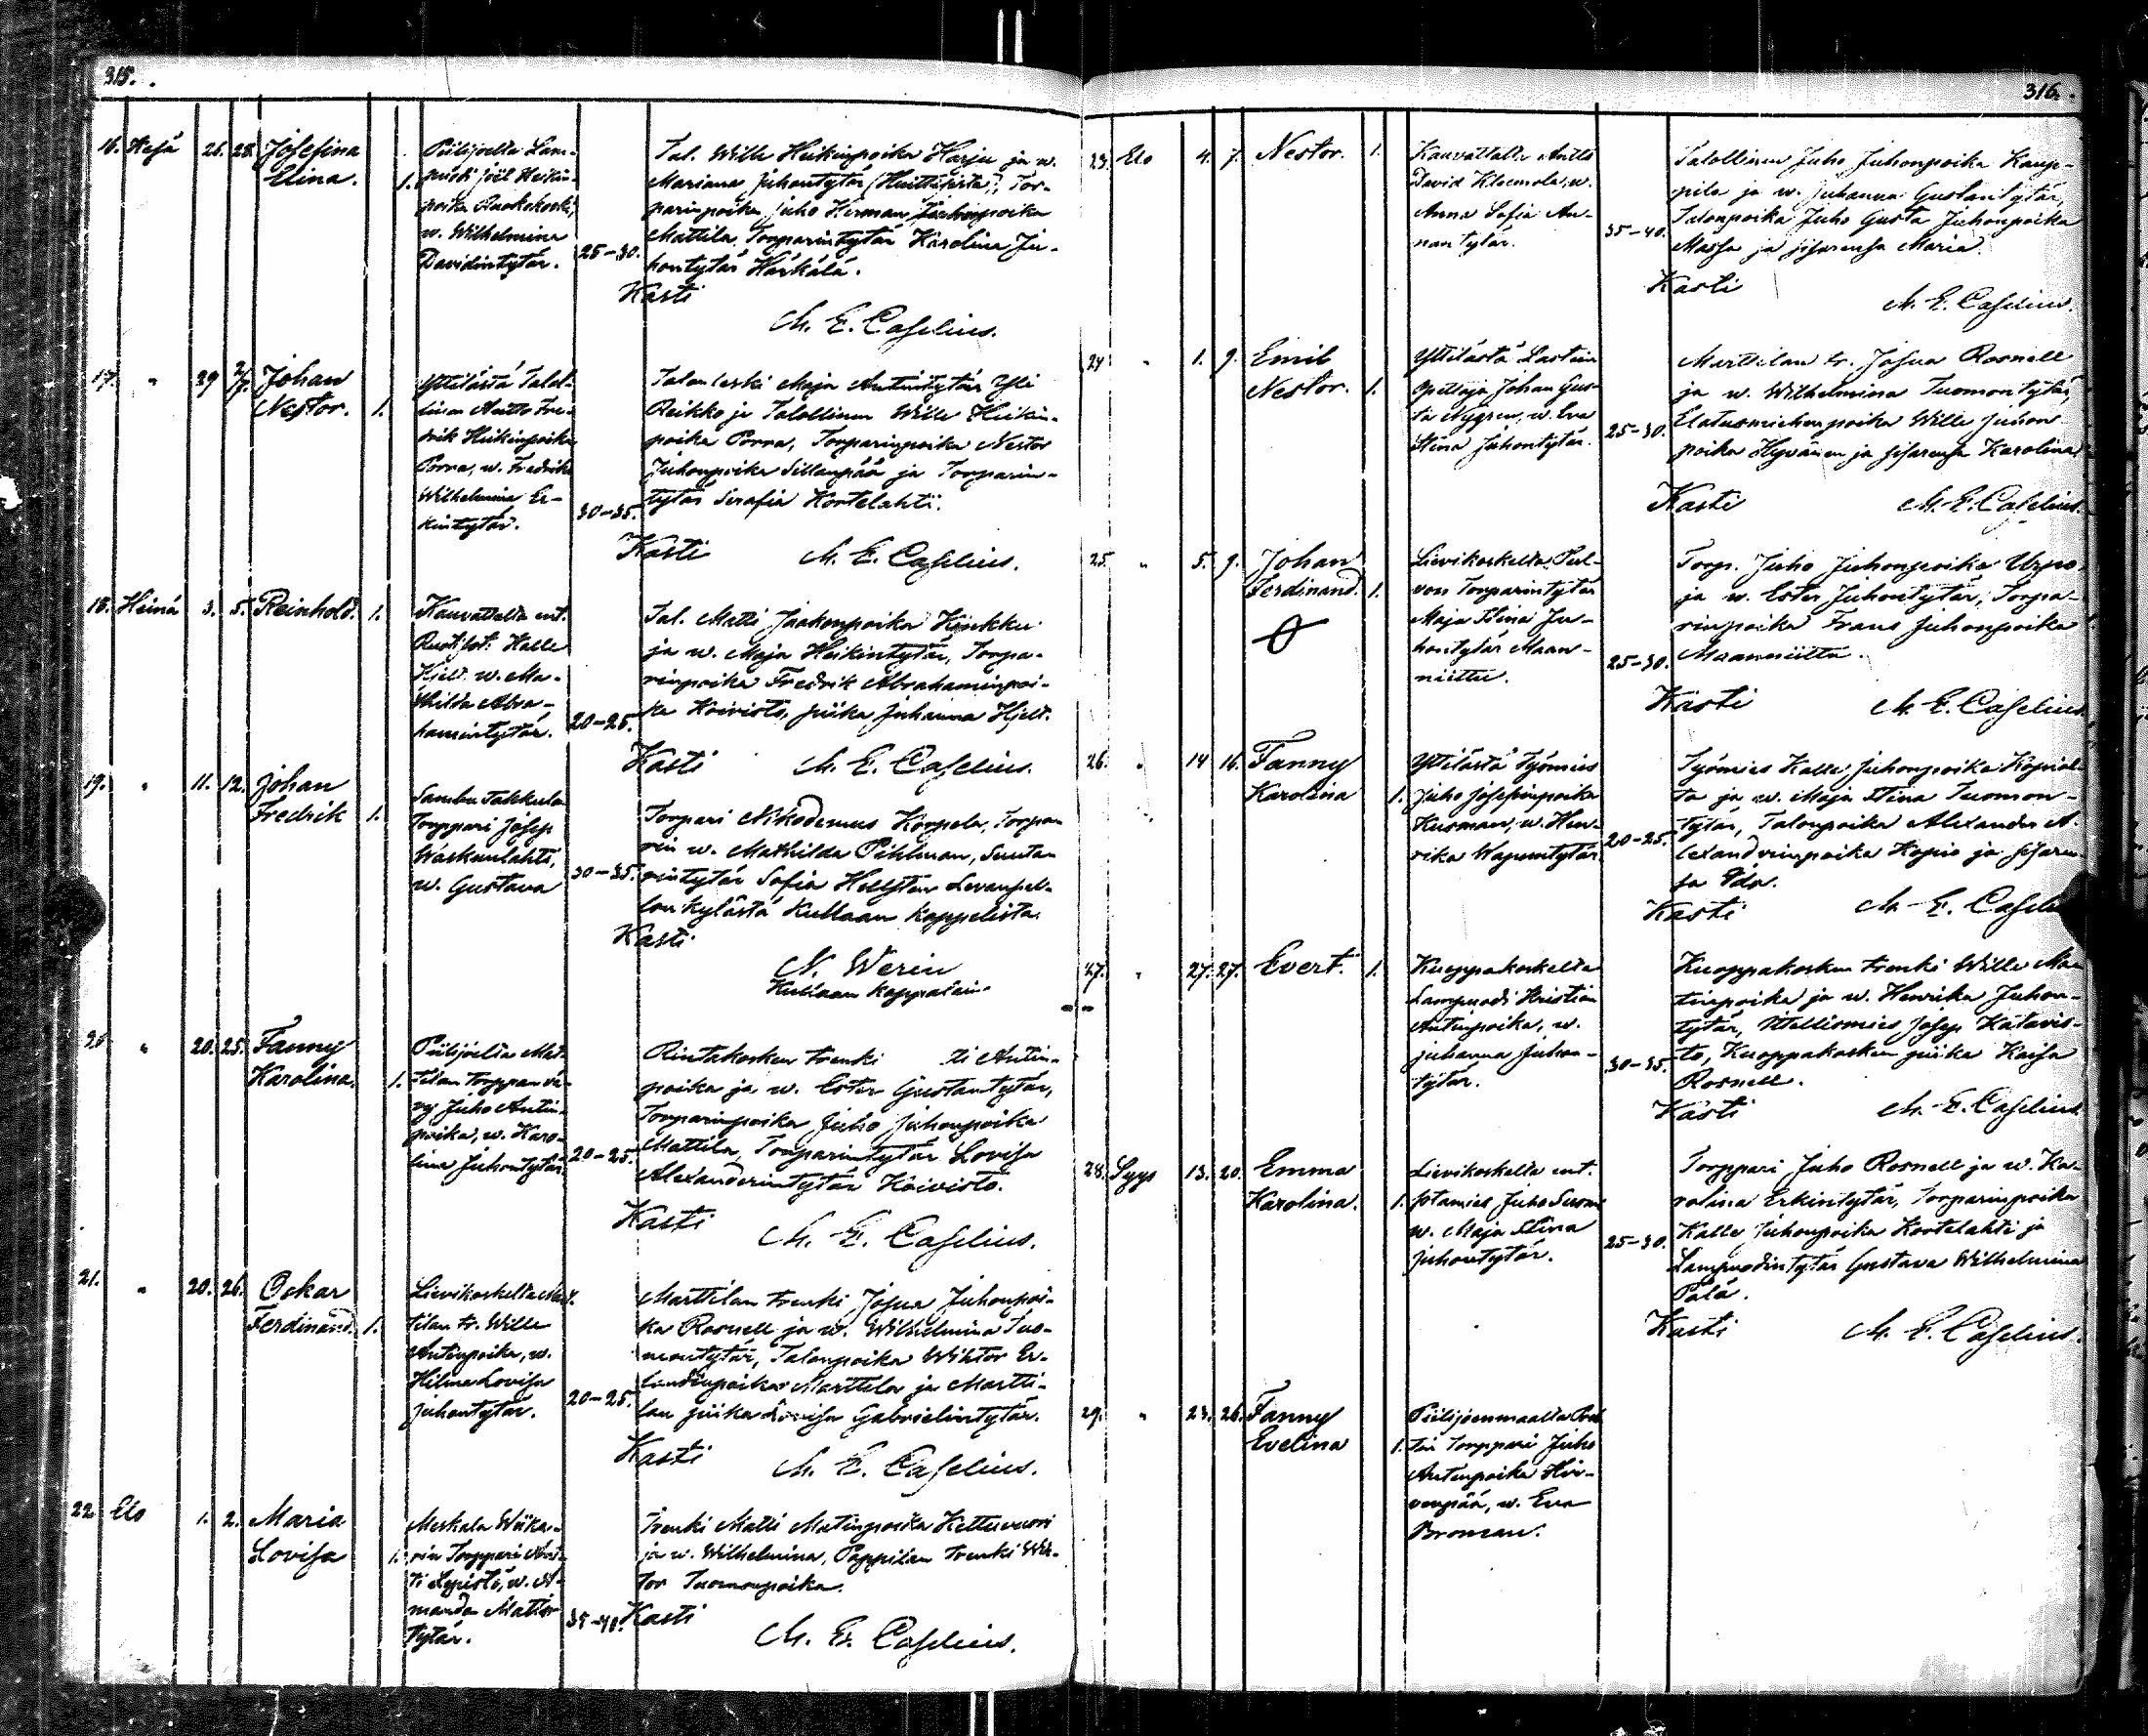 315.
16. Kesä 26. 28. Josefina
Elina. 1.
Piilijoelta Lam-
puodi Joel Heikin-
poika Ruokokoski,
w. Wilhelmina
Davidintytär. 25-30.
Tal. Wille Heikinpoika Harju ja w.
Mariana Juhontytär (Huittisista), Tor-
parinpoika Juho Herman Juhonpoika
Mattila, Torparintytär Karolina Ju-
hontytär Härkälä.
Kasti
M. E. Caselius.
17. " 29 2/7. Johan
Nestor. 1.
Yttilästä Talol-
linen Antto Fre-
drik Heikinpoika
Porra, w. Fredrika
Wilhelmina Er-
kintytär. 30-35.
Talonleski Maja Antintytär Yli
Reikko ja Talollinen Wille Heikin-
poika Porra, Torparinpoika Nestor
Juhonpoika Sillanpää ja Torparin-
tytär Serafia Kortelahti.
Kasti M. E. Caselius.
18. Heinä 3. 5. Reinhold. 1.
Kauvattalta ent.
Ruotisot. Kalle
Hjelt w. Ma-
thilda Abra-
hamintytär. 20-25.
Tal. Matti Jaakonpoika Kinkku
ja w. Maja Heikintytär, Torpa-
rinpoika Fredrik Abrahaminpoi-
ka Koivisto, piika Juhanna Hjelt.
Kasti M. E. Caselius.
19. " 11. 12. Johan
Fredrik 1.
Sambu Takkula
Torppari Josep
Waskunlahti,
w. Gustava 30-35.
Torpari Nikodemus Korpela, Torpa-
rin w. Mathilda Pihlman, Suuta-
rintytär Sofia Hellsten Levanpel-
lon kylästä Kullaan kappelista.
Kasti
N. Werin
Kullaan kappalain.
20. " 20. 25. Fanny
Karolina. 1.
Piilijoelta Mat-
tilan Torppan vä-
vy Juho Antin-
poika, w. Karo-
lina Juhontytär 20-25.
Rintakosken trenki ti Antin-
poika ja w. Ester Gustantytär,
Torparinpoika Juho Juhonpoika
Mattila, Torparintytär Lovisa
Alexanderintytär Koivisto.
Kasti
M. E. Caselius.
21. " 20. 26. Oskar
Ferdinand. 1.
Lievikoskelta Mart-
tilan tr. Wille
Antinpoika, w.
Hilma Lovisa
Juhontytär. 20-25.
Marttilan trenki Josua Juhonpoi-
ka Rosnell ja w. Wilhelmina Tuo-
montytär, Talonpoika Wihtor Er-
landinpoika Marttila ja Martti-
lan piika Lovisa Gabrielintytär.
Kasti
M. E. Caselius.
22. Elo 1. 2. Maria
Lovisa 1.
Meskala Wiika-
rin Torppari Ant-
ti Lepistö, w. A-
manda Matin
tytär. 35-40.
Trenki Matti Matinpoika Kettuvuori
ja w. Wilhelmina, Pappilan trenki Wih-
tor Tuomonpoika.
Kasti
M. E. Caselius.
316.
23. Elo 4. 7. Nestor. 1.
Kauvattalta Antti
David Kleemola, w.
Anna Sofia An-
nantytär. 35-40.
Talollinen Juho Juhonpoika Kaup-
pila ja w. Juhanna Gustantytär,
Talonpoika Juho Gusta Juhonpoika
Massa ja sisarensa Maria.
Kasti
M. E. Caselius.
24 " 1. 9. Emil
Nestor. 1.
Yttilästä Lasten
Opettaja Johan Gus-
ta Nygren, w. Eva
Stina Juhontytär. 25-30.
Marttilan tr. Josua Rosnell
ja w. Wilhelmina Tuomontytär,
Elatusmiehenpoika Wille Juhon
poika Hyvänen ja sisarensa Karolina
Kasti M. E. Caselius.
25. " 5. 9. Johan
Ferdinand. 1.
Lievikoskelta Pul-
von Torparintytär
Maja Stina Ju-
hontytär Maan-
niittu. 25-30.
Torp. Juho Juhonpoika Urpo
ja w. Ester Juhontytär, Torpa-
rinpoika Frans Juhonpoika
Maanniittu.
Kasti M. E. Caselius.
26. " 14 16. Fanny
Karolina 1.
Yttilästä Työmies
Juho Josefinpoika
Kusman, w. Hen-
rika Wapuntytär 20-25.
Työmies Kalle Juhonpoika Kopial-
ta ja w. Maja Stina Tuomon-
tytär, Talonpoika Alexander A-
lexandrinpoika Kopio ja sisaren-
sa Ida.
Kasti M. E. Caseli
27. " 27. 27. Evert. 1.
Kuoppakoskelta
Lampuodi Kristian
Antinpoika, w.
Juhanna Juhon-
tytär. 30-35.
Kuoppakosken trenki Wille Ma-
tinpoika ja w. Henrika Juhon-
tytär, Itsellismies Josep Kätavis-
to, Kuoppakosken piika Kaisa
Rosnell.
Kasti M. E. Caselius
28. Syys 13. 20. Emma
Karolina. 1.
Lievikoskelta ent.
sotamies Juho Suomi
w. Maja Stina
Juhontytär. 25-30.
Torppari Juho Rosnell ja w. Ka-
rolina Erkintytär, Torparinpoika
Kalle Juhonpoika Kortelahti ja
Lampuodintytär Gustava Wilhelmina
Palä.
Kasti M. E. Caselius.
29. " 23. 26. Fanny
Evelina 1.
Piilijoenmaalta
Torppari Juho
Antinpoika Hir-
venpää, w. Eva
Broman.